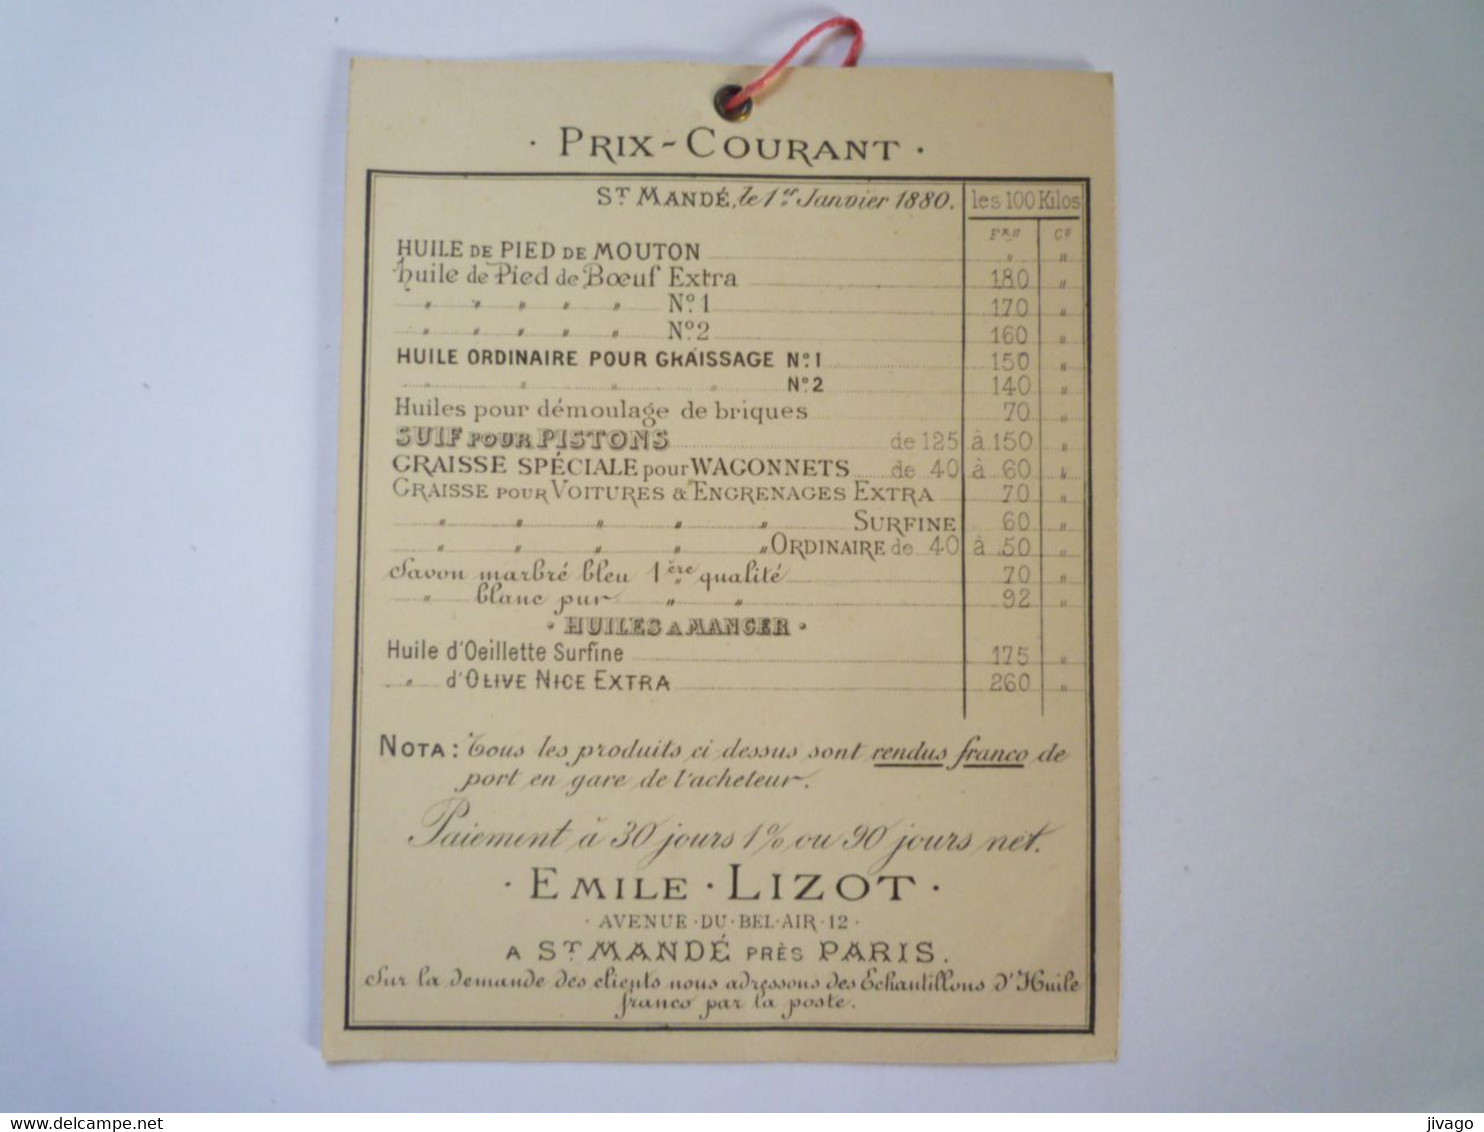 · PRIX-COURANT ·
ST MANDÉ, le 1er Janvier 1880. les 100 Kilos
FRS CS
HUILE DE PIED DE MOUTON " "
Huile de Pied de Bœuf Extra 180 "
" " " " " No 1 170 "
" " " " " No 2 160 "
HUILE ORDINAIRE POUR GRAISSAGE No 1 150 "
" " " " No 2 140 "
Huiles pour démoulage de briques 70 "
SUIF POUR PISTONS de 125 à 150 "
GRAISSE SPÉCIALE pour WAGONNETS de 40 à 60 "
GRAISSE POUR VOITURES & ENGRENAGES EXTRA 70 "
" " " " " SURFINE 60 "
" " " " " ORDINAIRE de 40 à 50 "
Savon marbré bleu 1ère qualité 70 "
" blanc pur " " 92 "
· HUILES A MANGER ·
Huile d'Oeillette Surfine 175 "
" d'OLIVE NICE EXTRA 260 "
NOTA: Tous les produits ci-dessus sont rendus franco de
port en gare de l'acheteur.
Paiement à 30 jours 1% ou 90 jours net.
· EMILE · LIZOT ·
· AVENUE · DU · BEL · AIR · 12 ·
A ST MANDÉ PRÈS PARIS.
Sur la demande des clients nous adressons des Echantillons d'Huile
franco par la poste.
delcampe.net
jivago